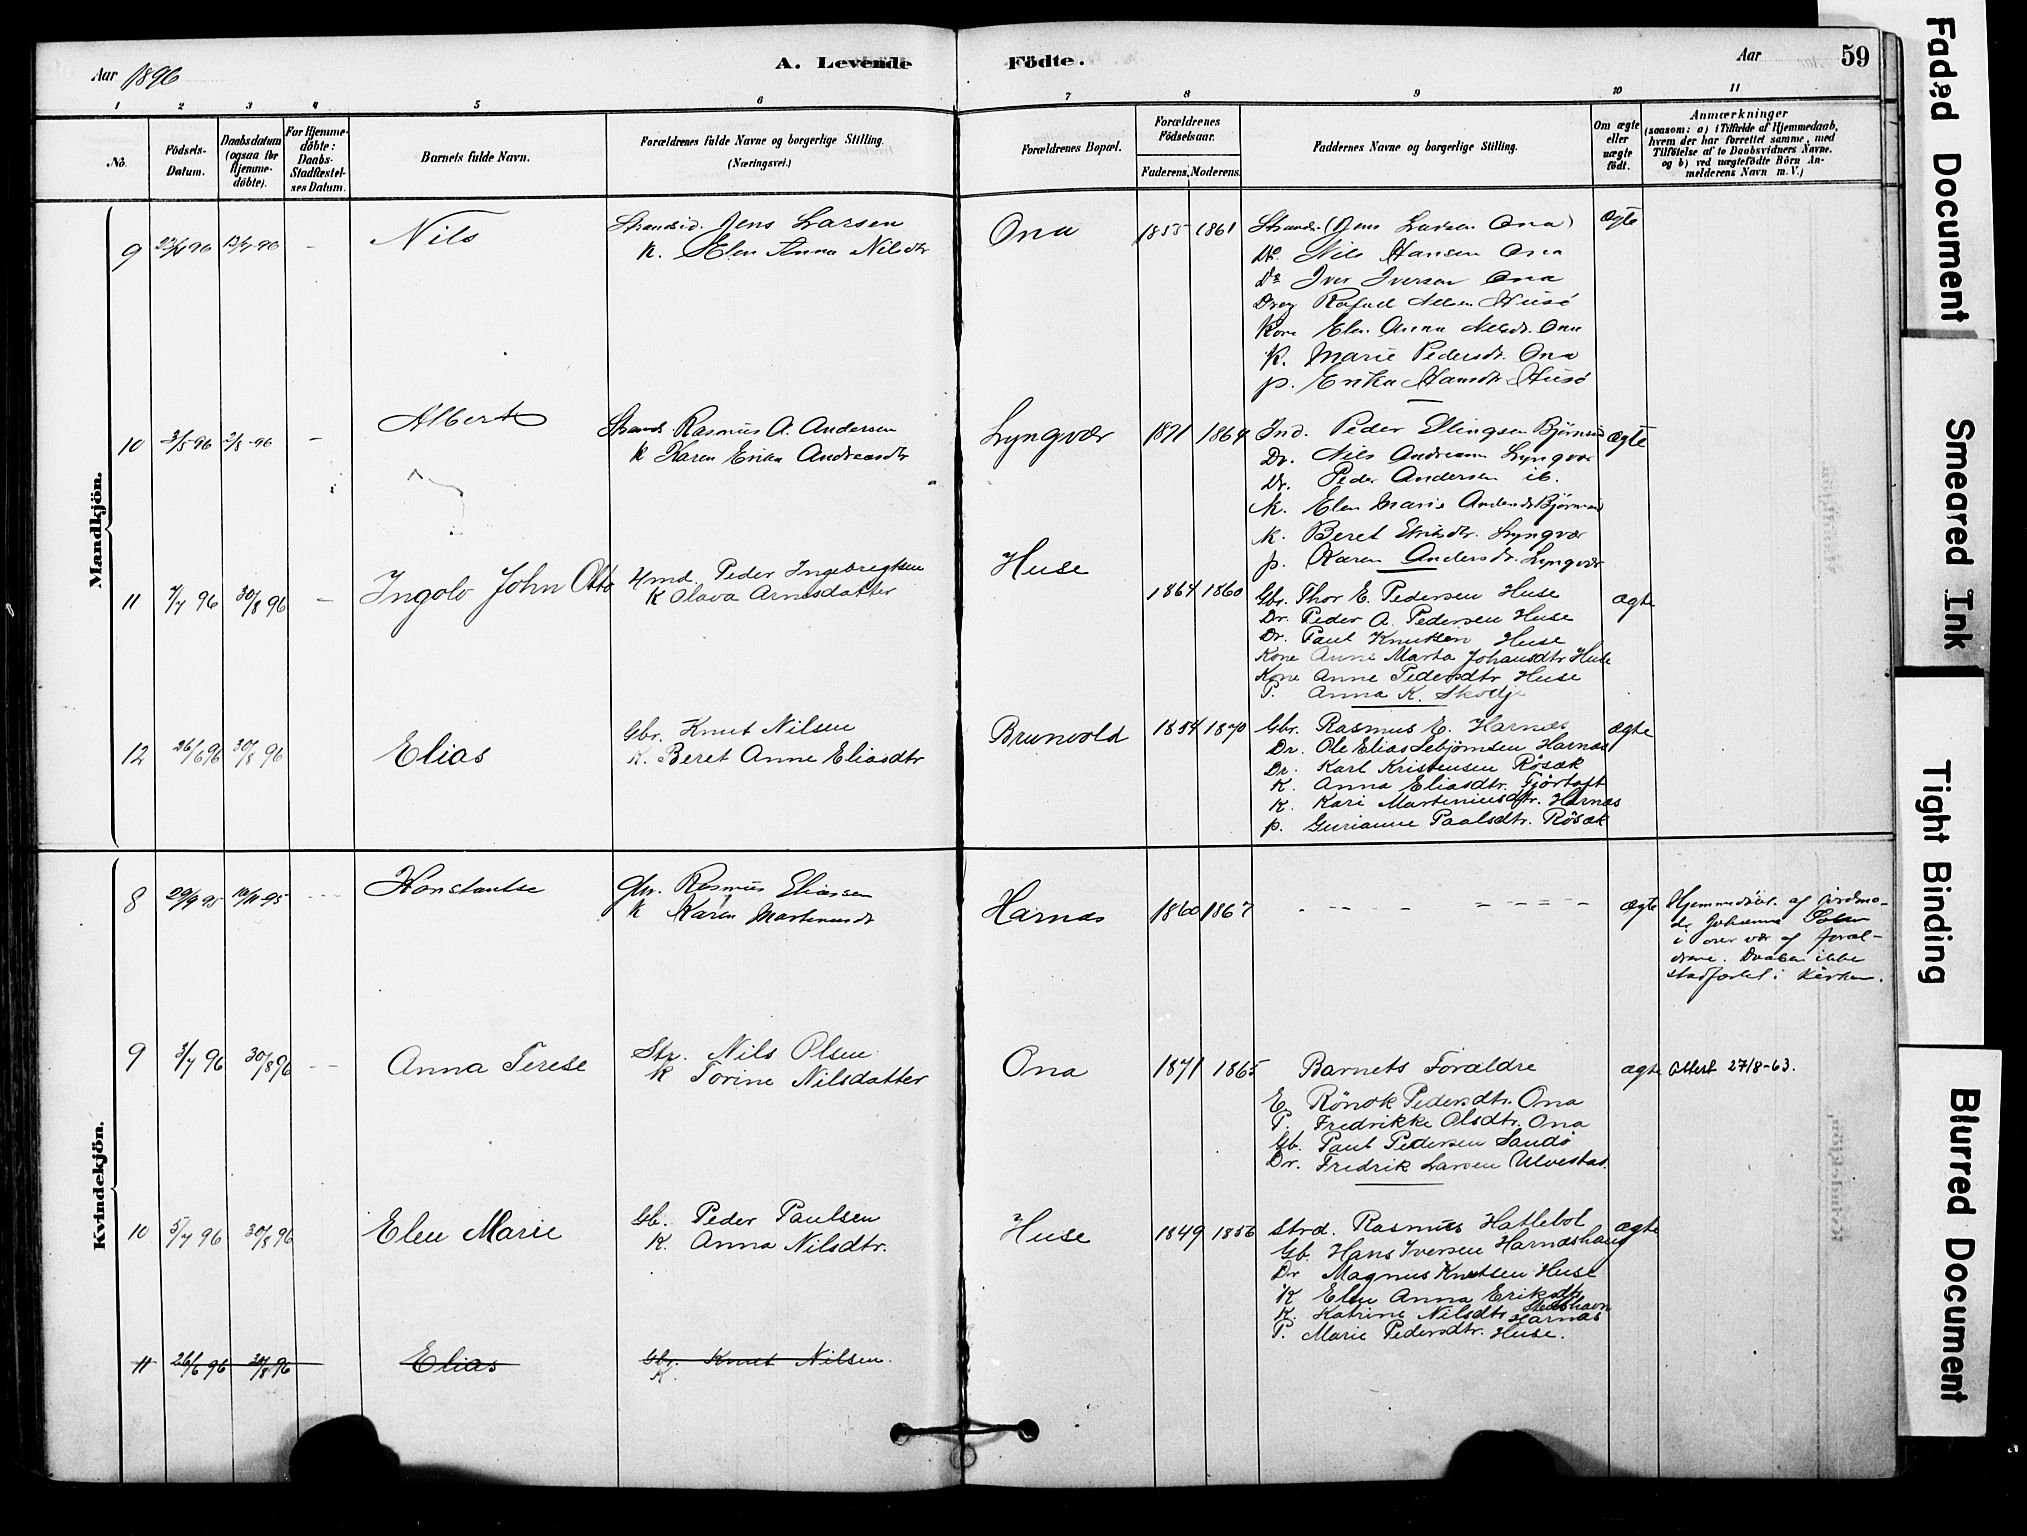 Aar 1896
A. Levende
Födte.
Aar
59
1 2 3 4 5 6 7 8 9 10 11
No.
Födsels-Datum.
Daabsdatum (ogsaa for Hjemmedöbte).
For Hjemmedöbte: Daabs-Stadfæstelses Datum.
Barnets fulde Navn.
Forældrenes fulde Navne og borgerlige Stilling. (Næringsvei.)
Forældrenes Bopæl.
Forældrenes Födselsaar.
Faderens. Moderens.
Faddernes Navne og borgerlige Stilling.
Om ægte eller uægte födt.
Anmærkninger (saasom: a) i Tilfælde af Hjemmedaab, hvem der har forrettet samme, med Tilföielse af to Daabsvidners Navne, og b) ved uægtefödte Börn Anmelderens Navn m. V.)
Mandkjön.
9 Nils
Strandsid. Jens Larsen
K. Elen Anna Nilsdtr
Ona 1855 1861
Strands. (Jens Larsen Ona)
Do. Nils Hansen Ona
Do Iver Iversen Ona
Dreng Rafael Nilsen Husö
Kone Elen Anna Nilsdr. Ona
K. Marie Pedersdr. Ona
p. Erika Hansdtr Husö
ægte
10 3/5 96 2/8 96 – Albert
Strands Rasmus A. Andersen
K Karen Erika Andreasdtr
Lyngvær 1871 1864
Ind. Peder Ellingsen Björnsund
Dr. Nils Andreasen Lyngvær
Dr. Peder Andersen ib.
K. Elen Marie
K. Beret Eriksdtr. Lyngvær
p. Karen Andersdtr. Lyngvær
ægte
11 7/7 96 30/8 96 – Ingolv John Otto
Hmd. Peder Ingebregtsen
K Olava Arnesdatter
Huse
1864 1860
Gbr. Thor E. Pedersen Huse
Dr. Peder A. Pedersen Huse
Dr. Paul Knutsen Huse
Kone Anne Marta Johansdtr Huse
Kone Anne Pedersdtr Huse
P. Anna K. Skodje
ægte
12 26/6 96 30/8 96 Elias
Gbr. Knut Nilsen
K. Beret Anne Eliasdtr
Brunvold 1854 1870
Gbr. Rasmus E. Harnæs
Dr. Ole Elias Sebjørnsen Harnæs
Dr. Karl Kristensen Røsæk
K. Anna Eliasdtr. Fjörtoft
K. Kari Martiniusdtr. Harnæs
p. Gurianne Paalsdtr. Røsæk
ægte
Kvindekjön.
8 29/9 95 Konstantse
Gbr. Rasmus Eliassen
K Karen Martinusdr
Harnæs 1860 1867
ægte
Hjemmedöbt af jordmo-
der Johanna
i overvær af foræl-
drene. Daaben ikke
stadfæstet i Kirken.
9 3/7 96 30/8 96 Anna Terese
Str. Nils Olsen
K Torine Nilsdatter
Ona 1871 1865
Barnets Forældre
E. Rönok Pedersdtr. Ona
P. Fredrikke Olsdtr. Ona
Gb. Paul Pedersen Sandö
Dr. Fredrik Larsen Ulvestad
ægte Attest 27/8-63.
10 5/7 96 30/8 96 Elen Marie
Gb. Peder Paulsen
K. Anna Nilsdtr.
Huse 1849 1856
Strd. Rasmus Hatlebol
Gb. Hans Iversen Harnæshaug
Dr Magnus Knutsen Huse
K Elen Anna Eriksdtr Steshavn
K. Katrine Nilsdtr Harnæs
P. Marie Pedersdtr. Huse.
ægte
11 26/6 96 30/8 96 Elias
Gbr. Knut Nilsen.
K.
Faded Document
Smeared Ink
Tight Binding
Blurred Document